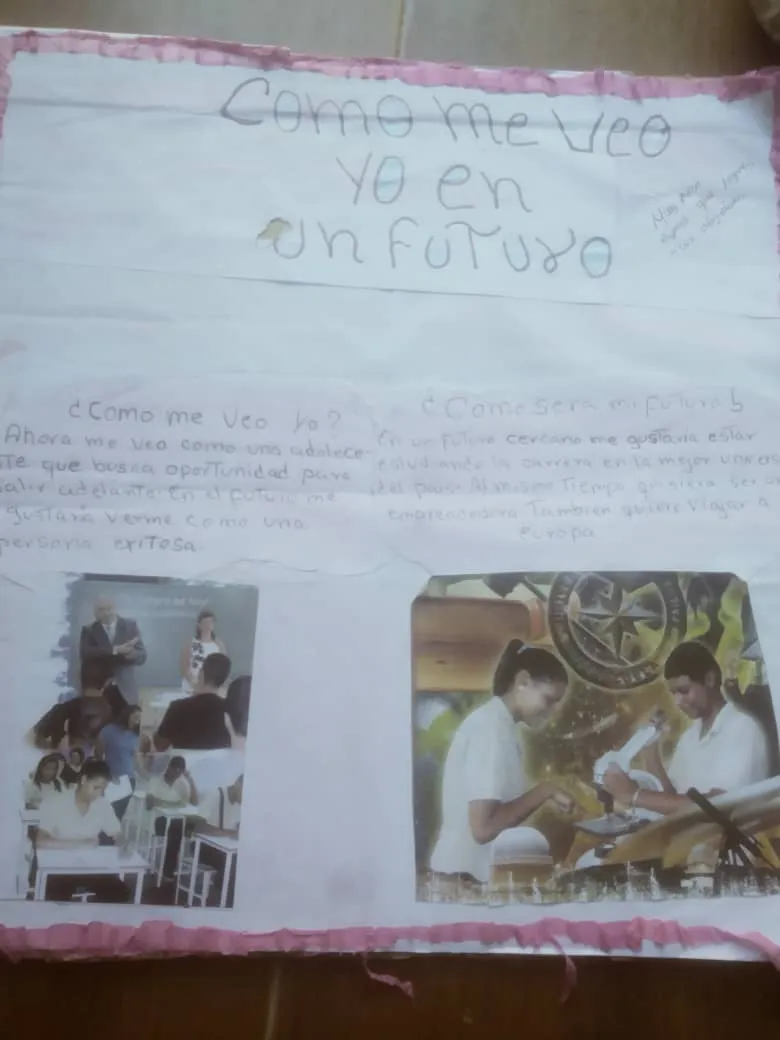 Como me veo
yo en
un futuro
¿Como me veo yo?
Ahora me veo como una adolece
te que busca oportunidad para
salir adelante. En el futuro me
gustaria verme como una
persona exitosa.
¿Como sera mi futuro?
En un futuro cercano me gustaria estar
estudiando la carrera en la mejor univers
del pais. Al mismo Tiempo quisiera ser un
emprendedora Tambien quiero viajar a
europa